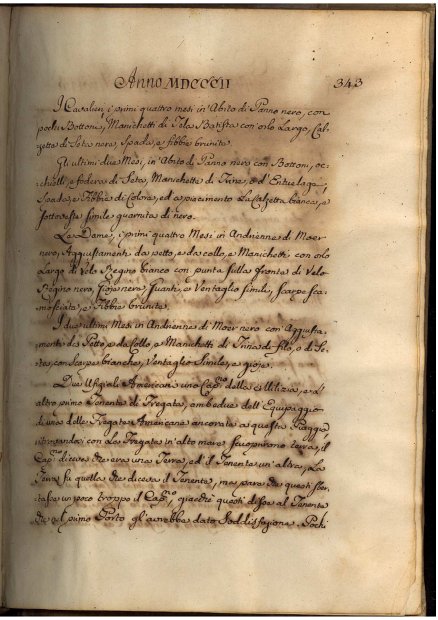 Anno MDCCCII 343
I Cavalieri i primi quattro mesi in' Abito di Panno nero, con
pochi Bottoni, Manichetti di Tela Batista con orlo Largo, Cal-
zetta di Seta nera, Spada, e fibbie brunite.
Gli ultimi due Mesi, in' Abito di Panno nero con Bottoni, oc-
chietti, e fodera di Seta, Manichette di Trine, o d'Entuelage,
Spada, e Fibbie di Colore, ed a piacimento La Calzetta bianca, e
Sottoveste simile guarnita di nero.
Le Dame, i primi quattro Mesi in Andrienne di Moer
nero, Aggiustamenti da petto, e da collo, e Manichetti con orlo
Largo di Velo Regino bianco con punta sulla fronte di Velo
Regino nero, gioje nere, Guanti, e Ventaglio simile, scarpe sca-
mosciate, e Fibbie brunite.
I due ultimi Mesi in Andrienne di Moer nero con Aggiusta-
menti da Petto, e da Collo, e Manichetti di Trina di filo, o di Se-
ta, con Scarpe bianche, Ventaglio Simile, e gioje.
Due Ufiziali Americani uno Cap.no della Milizia, e l'
altro primo Tenente di Fregata, ambedue dell'Equipaggio
di una delle Fregate Americane ancorate a queste Piagge
ritrovandosi con La Fregata in' alto mare scuoprirono terra, il
Cap.no diceva che era una Terra, ed il Tenente un' altra, La
Terra fu quella che diceva il Tenente, ma pare che questi
un poco troppo il Cap.no, giacchè questi disse al Tenente
che nel primo Porto gl'avrebbe dato Soddisfazione. Pochi